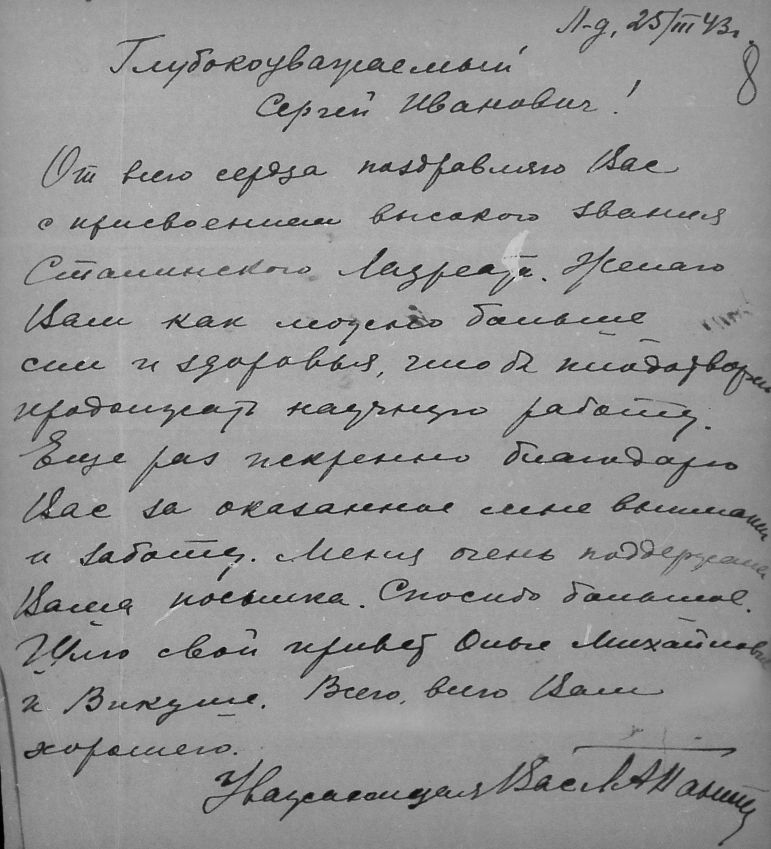 Л-д, 25/III 43г.
8
Глубокоуважаемый
Сергей Иванович!
От всего сердца поздравляю Вас
с присвоением высокого звания
Сталинского Лауреата. Желаю
Вам как можно больше
сил и здоровья, чтобы плодотворно
продолжать научную работу.
Еще раз искренно благодарю
Вас за оказанное мне внимание
и заботу. Меня очень поддержала
Ваша посылка. Спасибо большое.
Шлю свой привет Ольге Михайловне
и Викуше. Всего, всего Вам
хорошего.
Уважающая Вас Л А